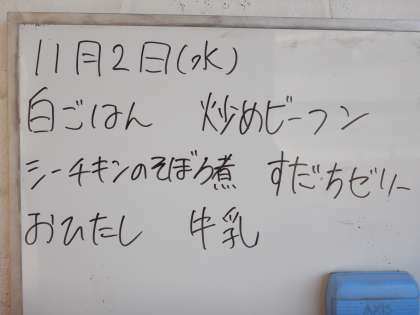 11月2日(水)
白ごはん 炒めビーフン
シーチキンのそぼろ煮 すだちゼリー
おひたし 牛乳